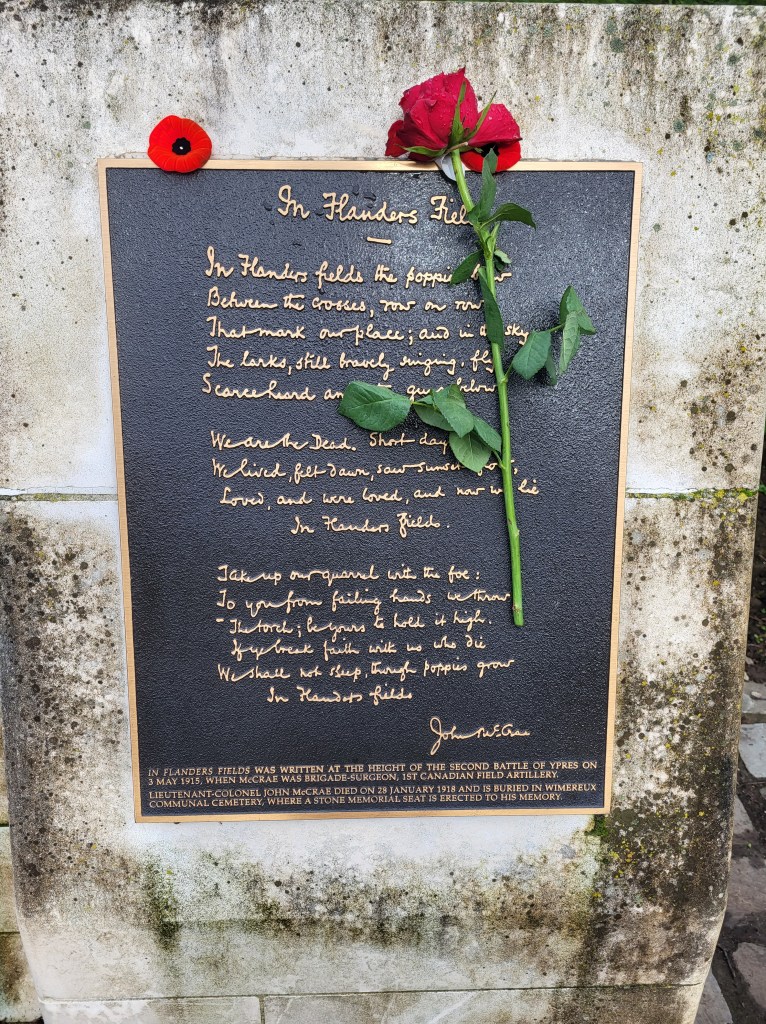 In Flanders Fields
In Flanders fields the poppies
Between the crosses, row on row
That mark our place; and in the sky
The larks, still bravely singing, fly
Scarce heard below
We are the Dead. Short days
We lived, felt dawn, saw sunset
Loved, and were loved, and now we lie
In Flanders fields.
Take up our quarrel with the foe:
To you from failing hands we throw
The torch; be yours to hold it high.
If ye break faith with us who die
We shall not sleep, though poppies grow
In Flanders fields
John McCrae
IN FLANDERS FIELDS WAS WRITTEN AT THE HEIGHT OF THE SECOND BATTLE OF YPRES ON
3 MAY 1915, WHEN McCRAE WAS BRIGADE-SURGEON, 1ST CANADIAN FIELD ARTILLERY.
LIEUTENANT-COLONEL JOHN McCRAE DIED ON 28 JANUARY 1918 AND IS BURIED IN WIMEREUX
COMMUNAL CEMETERY, WHERE A STONE MEMORIAL SEAT IS ERECTED TO HIS MEMORY.